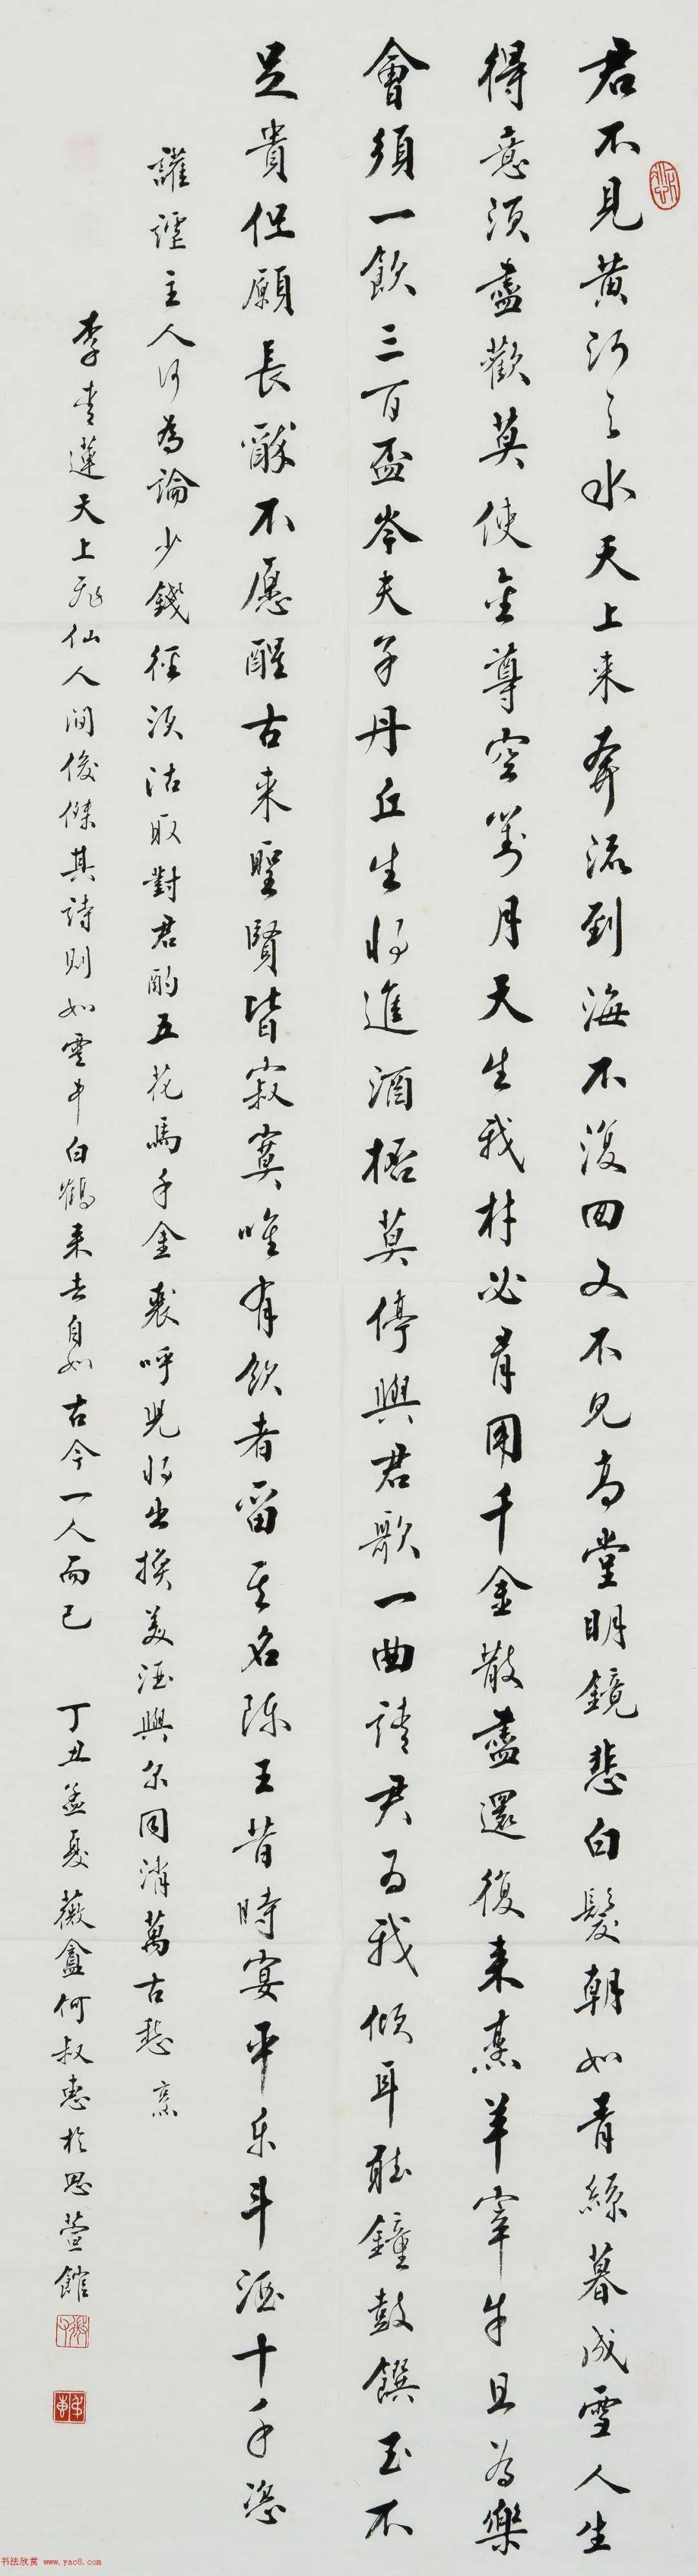 君不見黃河之水天上来奔流到海不復回又不見高堂明鏡悲白髮朝如青絲暮成雪人生
得意須盡歡莫使金尊空對月天生我材必有用千金散盡還復来烹羊宰牛且為樂
會須一飲三百盃岑夫子丹丘生將進酒桮莫停與君歌一曲請君為我傾耳聽鐘鼓饌玉不
足貴但願長醉不愿醒古来聖賢皆寂寞唯有飲者留其名陳王昔時宴平樂斗酒十千恣
讙謔主人何為論少錢徑須沽取對君酌五花馬千金裘呼兒將出換美酒與尔同消萬古愁 烹
李青蓮天上飛仙人間俊傑其詩則如雲中白鶴来去自如古今一人而已 丁丑孟夏薇盦何叔惠於思萱館
书法欣赏 www.yac8.com